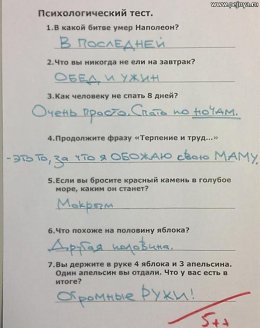 www.pejnya.ru
Психологический тест.
1.В какой битве умер Наполеон?
В последней
2.Что вы никогда не ели на завтрак?
ОБЕД и УЖИН
3.Как человеку не спать 8 дней?
Очень просто. Спать по НОЧАМ.
4.Продолжите фразу «Терпение и труд...»
-это то, за что я ОБОЖАЮ свою МАМУ.
5.Если вы бросите красный камень в голубое
море, каким он станет?
Мокрым
6.Что похоже на половину яблока?
Другая половина.
7.Вы держите в руке 4 яблока и 3 апельсина.
Один апельсин вы отдали. Что у вас есть в
итоге?
Огромные РУКИ!
5++